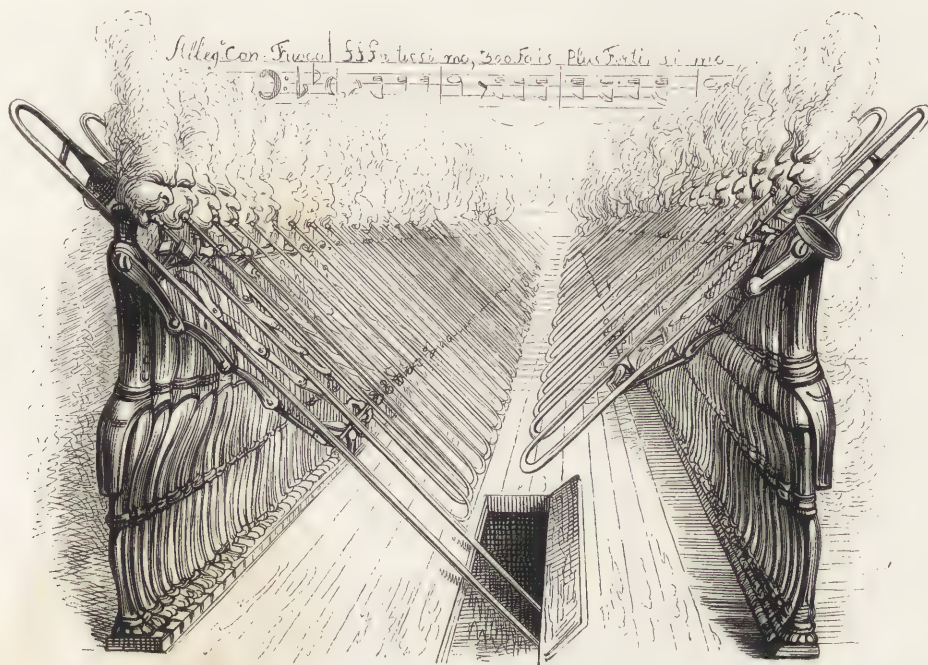 Alleg° Con Fuoco fff a tessi mo, 300 fois Plus Forti si mo